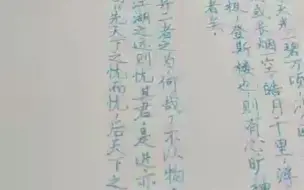 天光一碧万顷
或长烟一空，皓月千里，浮
极！登斯楼也，则有心旷神
者矣。
二者之为，何哉？不以物
江湖之远则忧其君。是进亦
先天下之忧而忧，后天下之